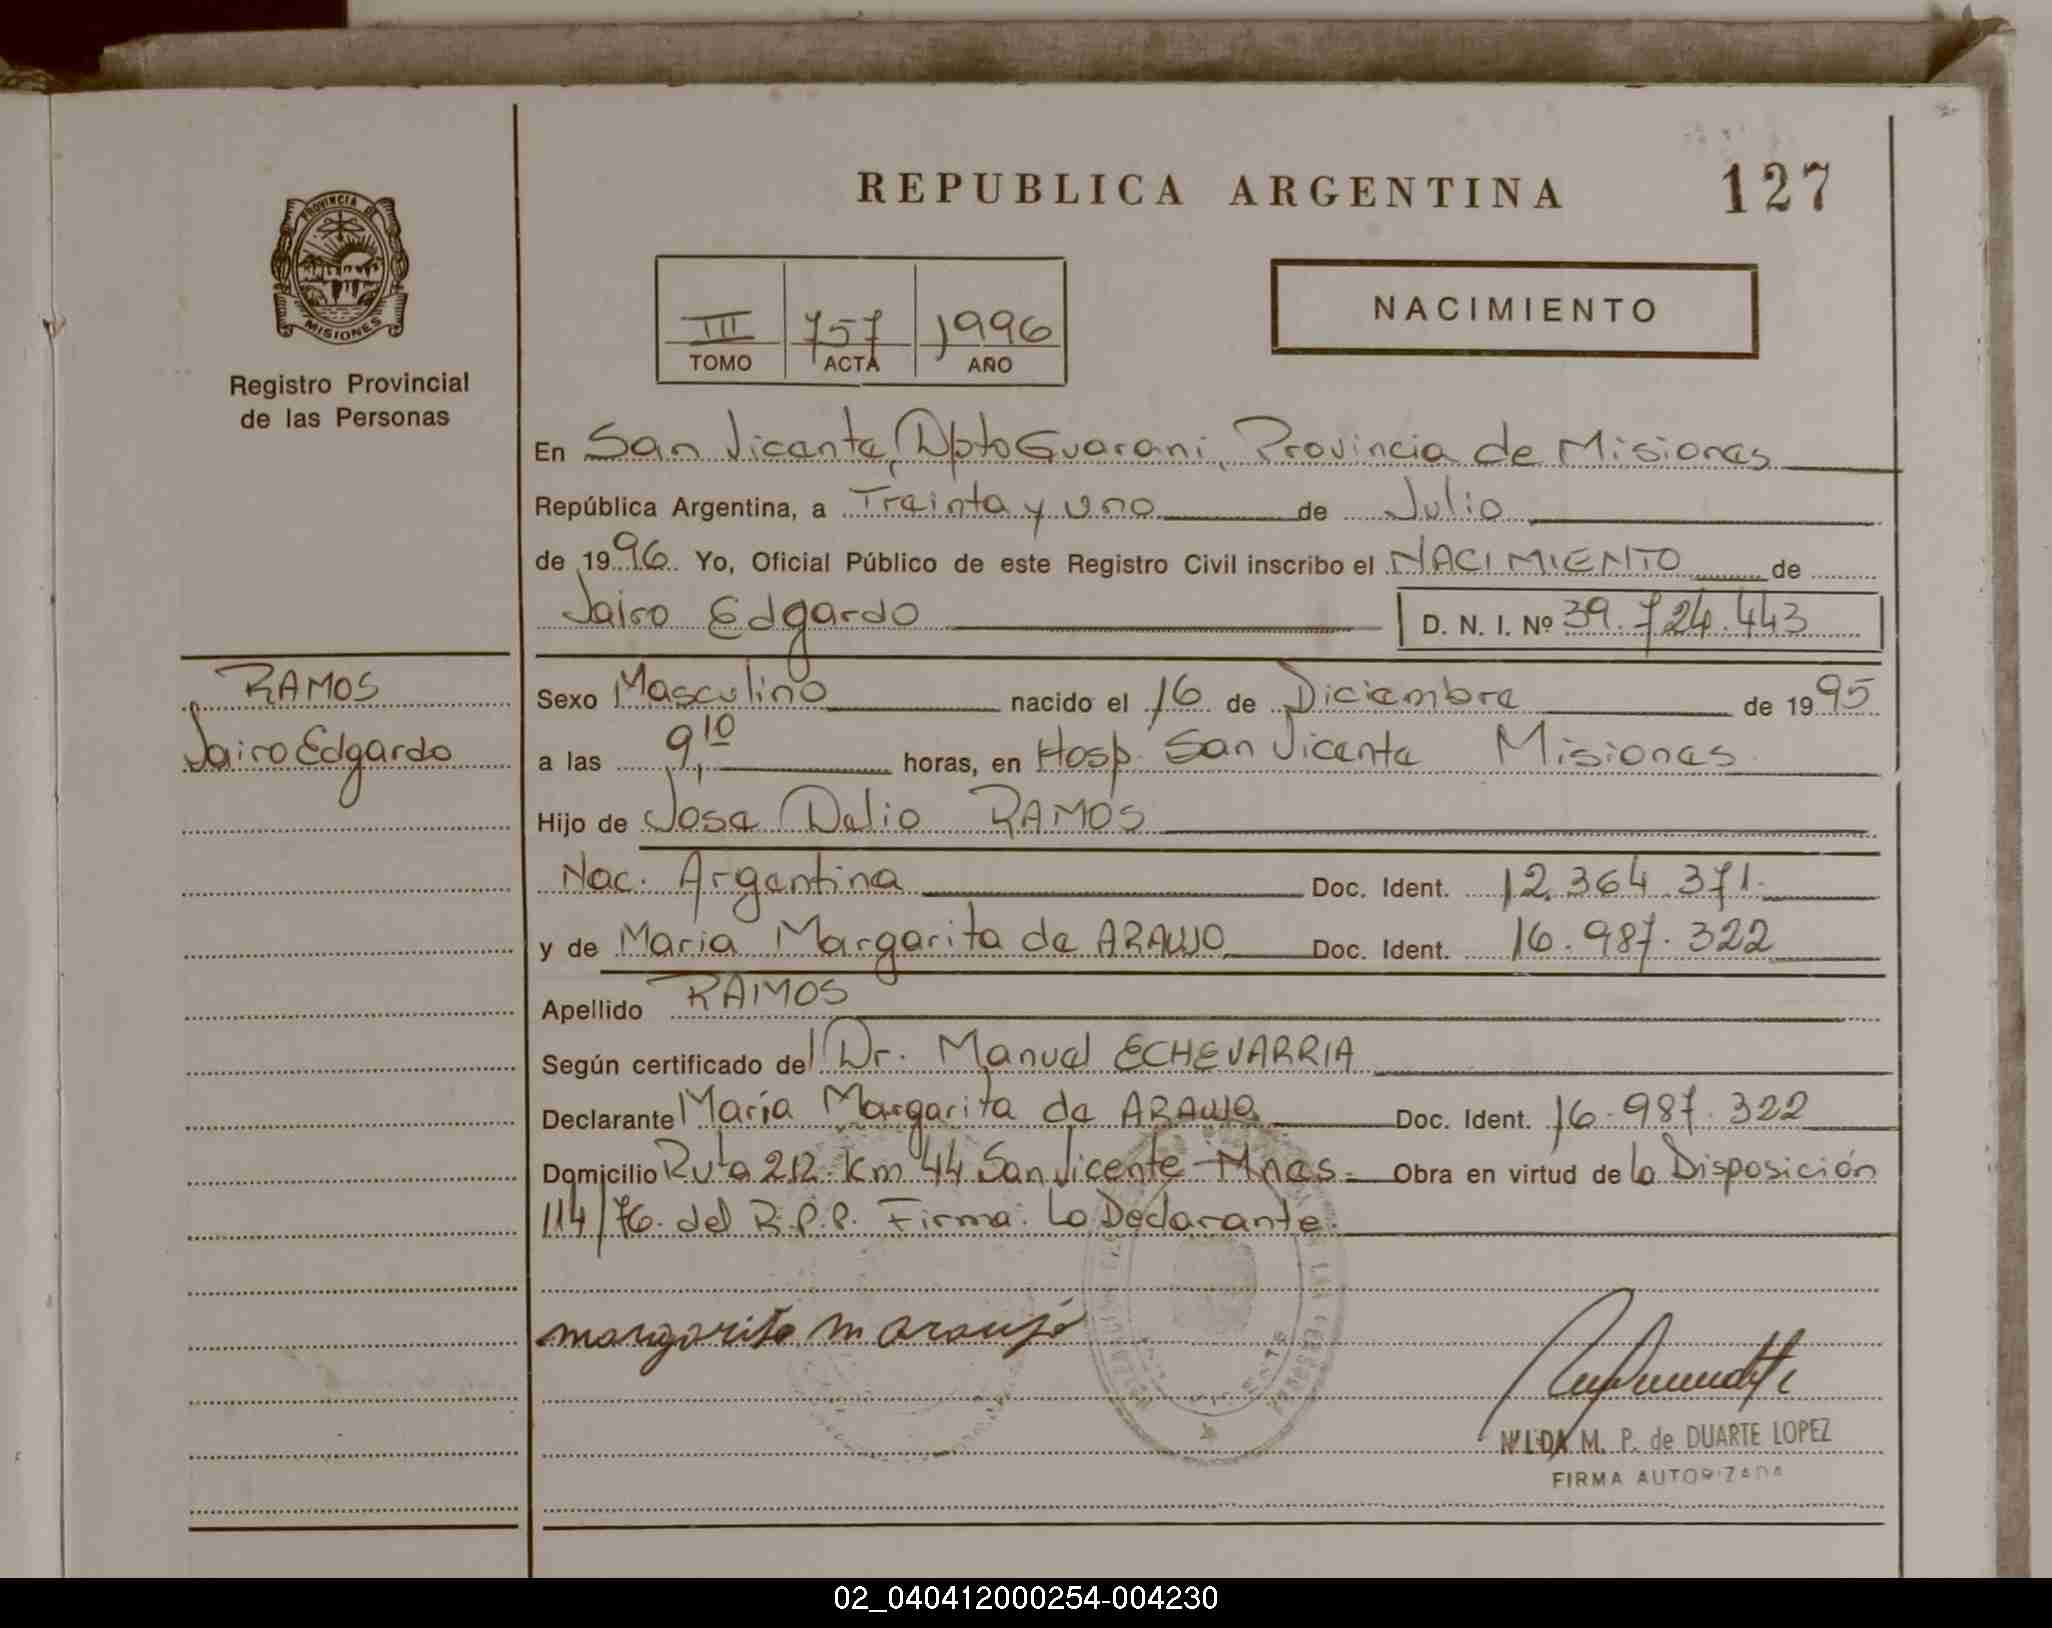 REPUBLICA ARGENTINA
127
PROVINCIA DE
MISIONES
Registro Provincial
de las Personas
III
TOMO
757
ACTA
1996
AÑO
NACIMIENTO
En San Vicente, Dpto Guarani, Provincia de Misiones
República Argentina, a Treinta y uno de Julio
de 1996. Yo, Oficial Público de este Registro Civil inscribo el NACIMIENTO de
Jairo Edgardo
D. N. I. Nº 39.724.443
RAMOS
Jairo Edgardo
Sexo Masculino nacido el 16 de Diciembre de 1995
a las 9,10 horas, en Hosp. San Vicente Misiones
Hijo de Jose Delio RAMOS
Nac. Argentina Doc. Ident. 12.364.371.
y de Maria Margarita de ARAUJO Doc. Ident. 16.987.322
Apellido RAMOS
Según certificado del Dr. Manuel ECHEVARRIA
Declarante María Margarita de ARAUJO Doc. Ident. 16.987.322
Domicilio Ruta 212. Km 44 San Vicente-Mnes= Obra en virtud de la Disposición
114/76. del R.P.P. Firma: La Declarante.
margarita m araujo
NILDA M. P. de DUARTE LOPEZ
FIRMA AUTORIZADA
02_040412000254-004230